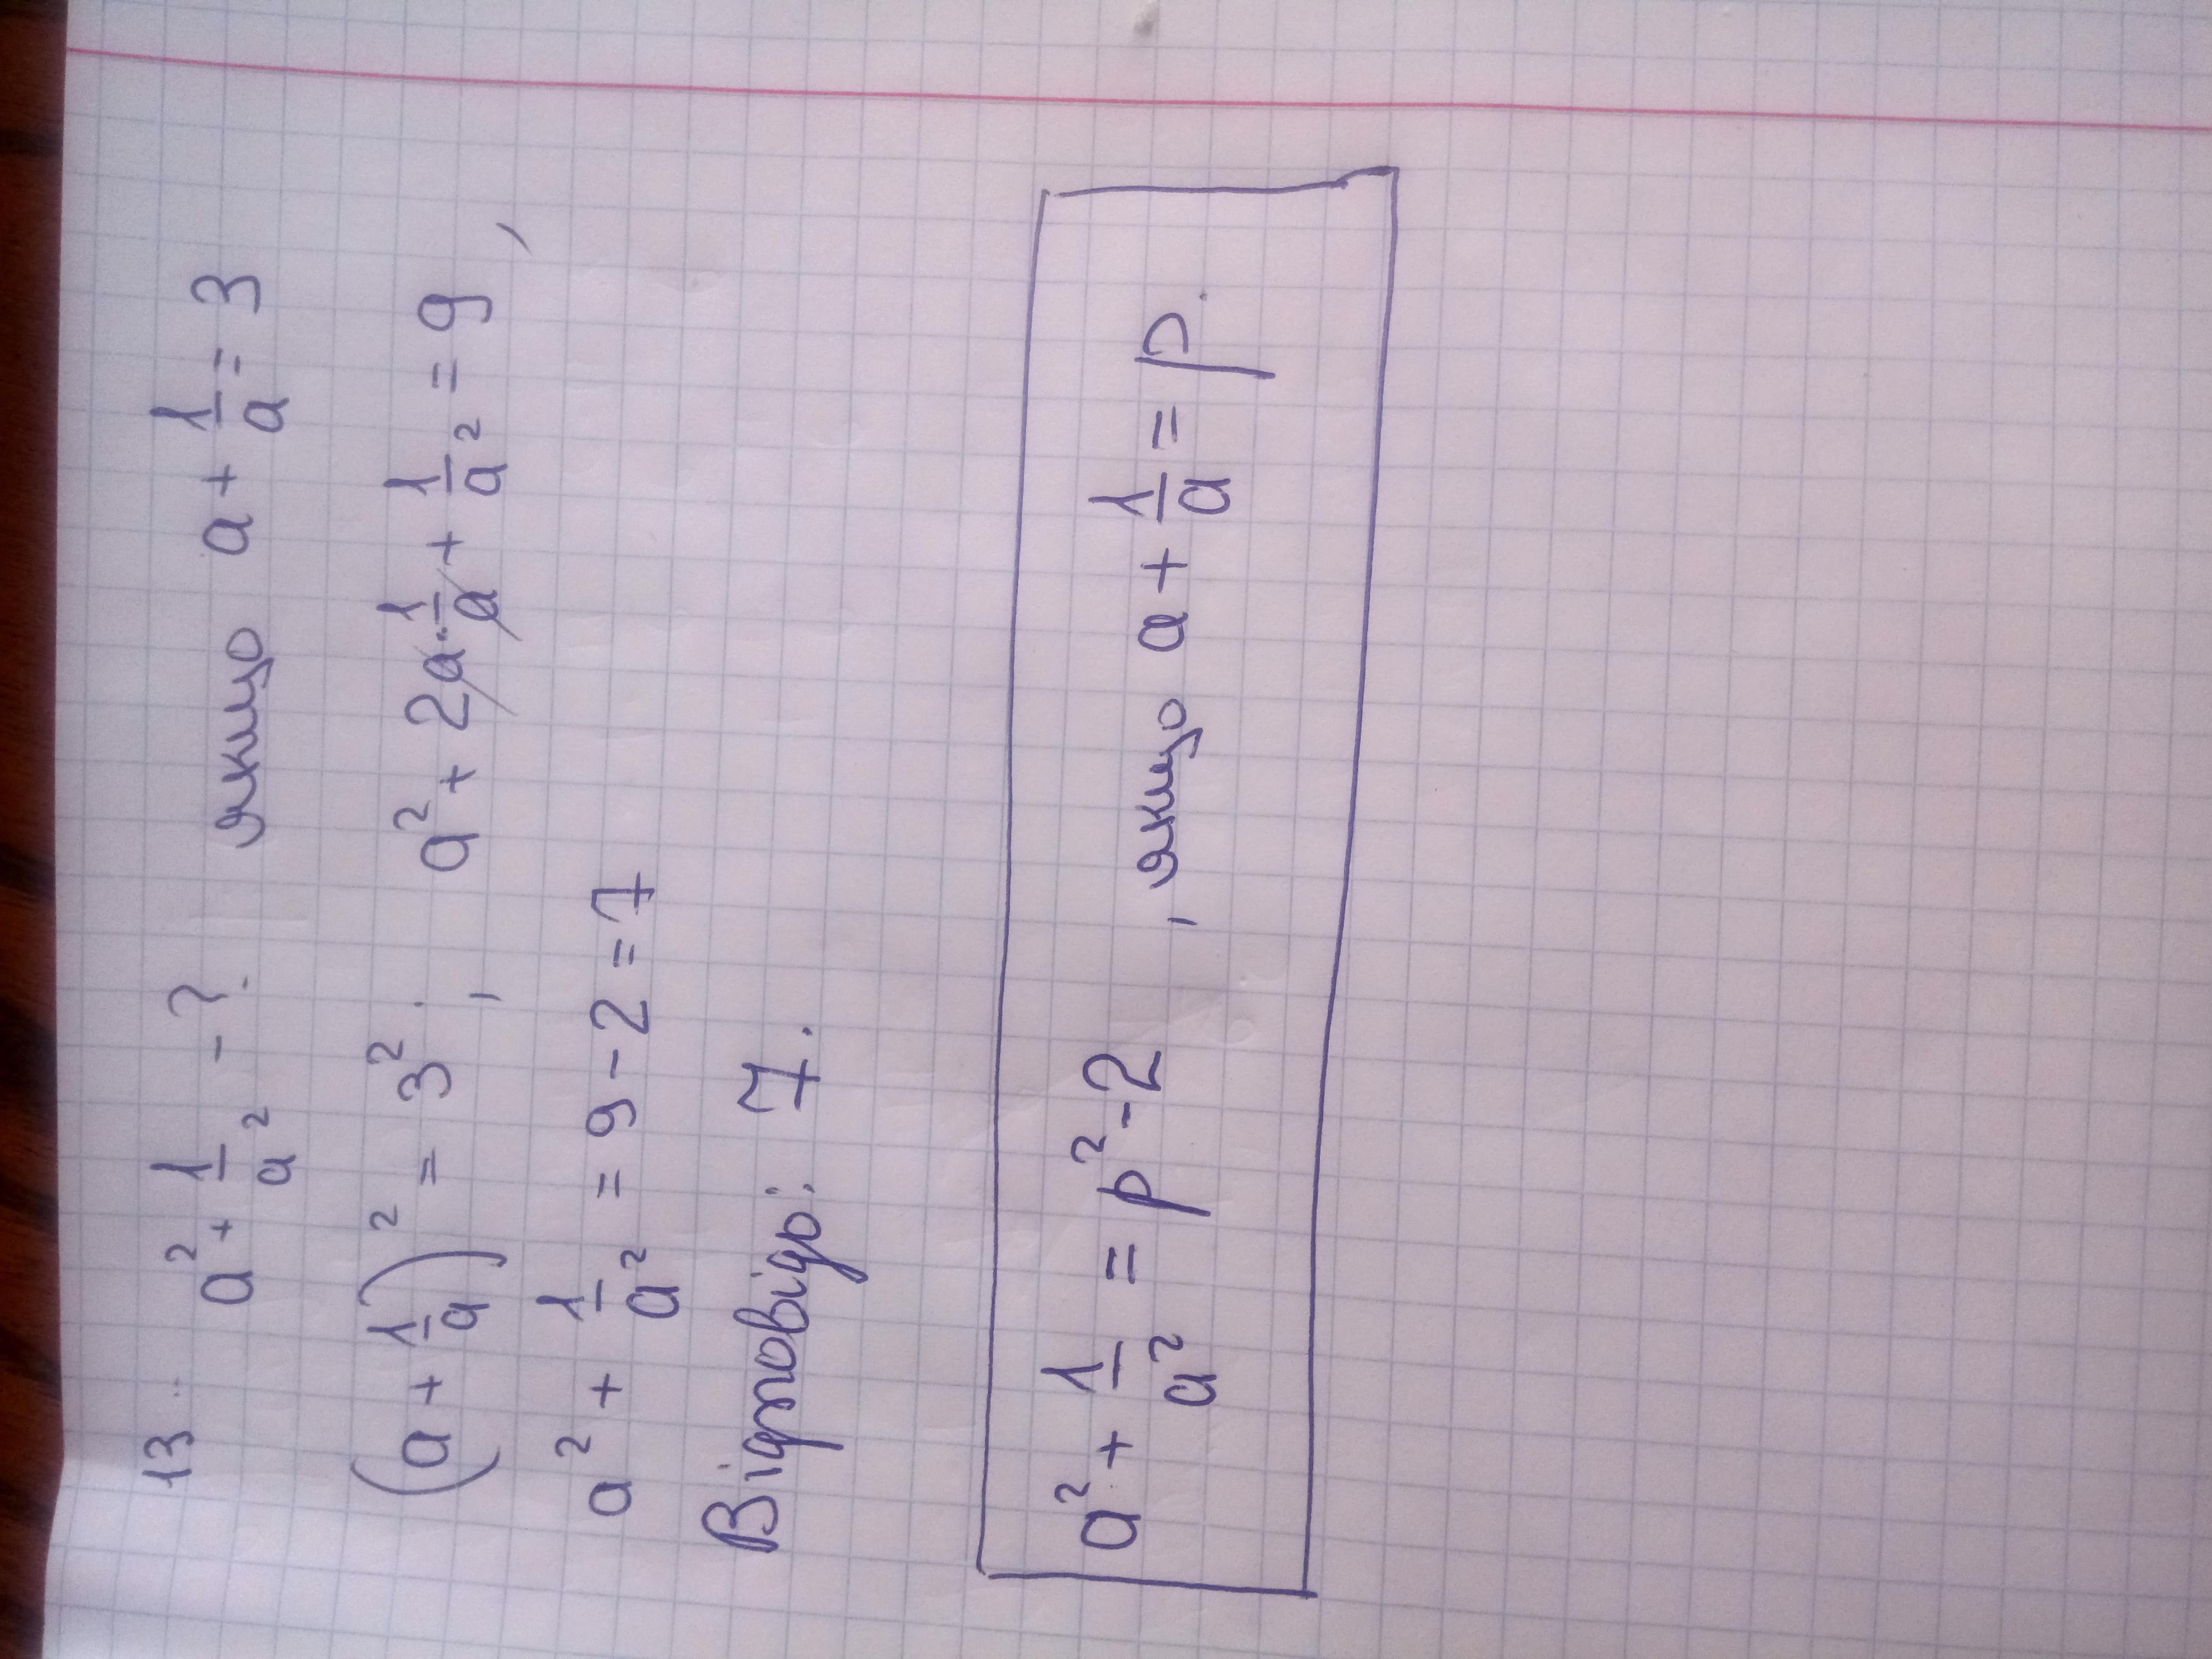 13. a² + 1/a² - ?. якщо a + 1/a = 3
(a + 1/a)² = 3²; a² + 2a · 1/a + 1/a² = 9,
a² + 1/a² = 9 - 2 = 7
Відповідь: 7.
a² + 1/a² = p² - 2 , якщо a + 1/a = p.